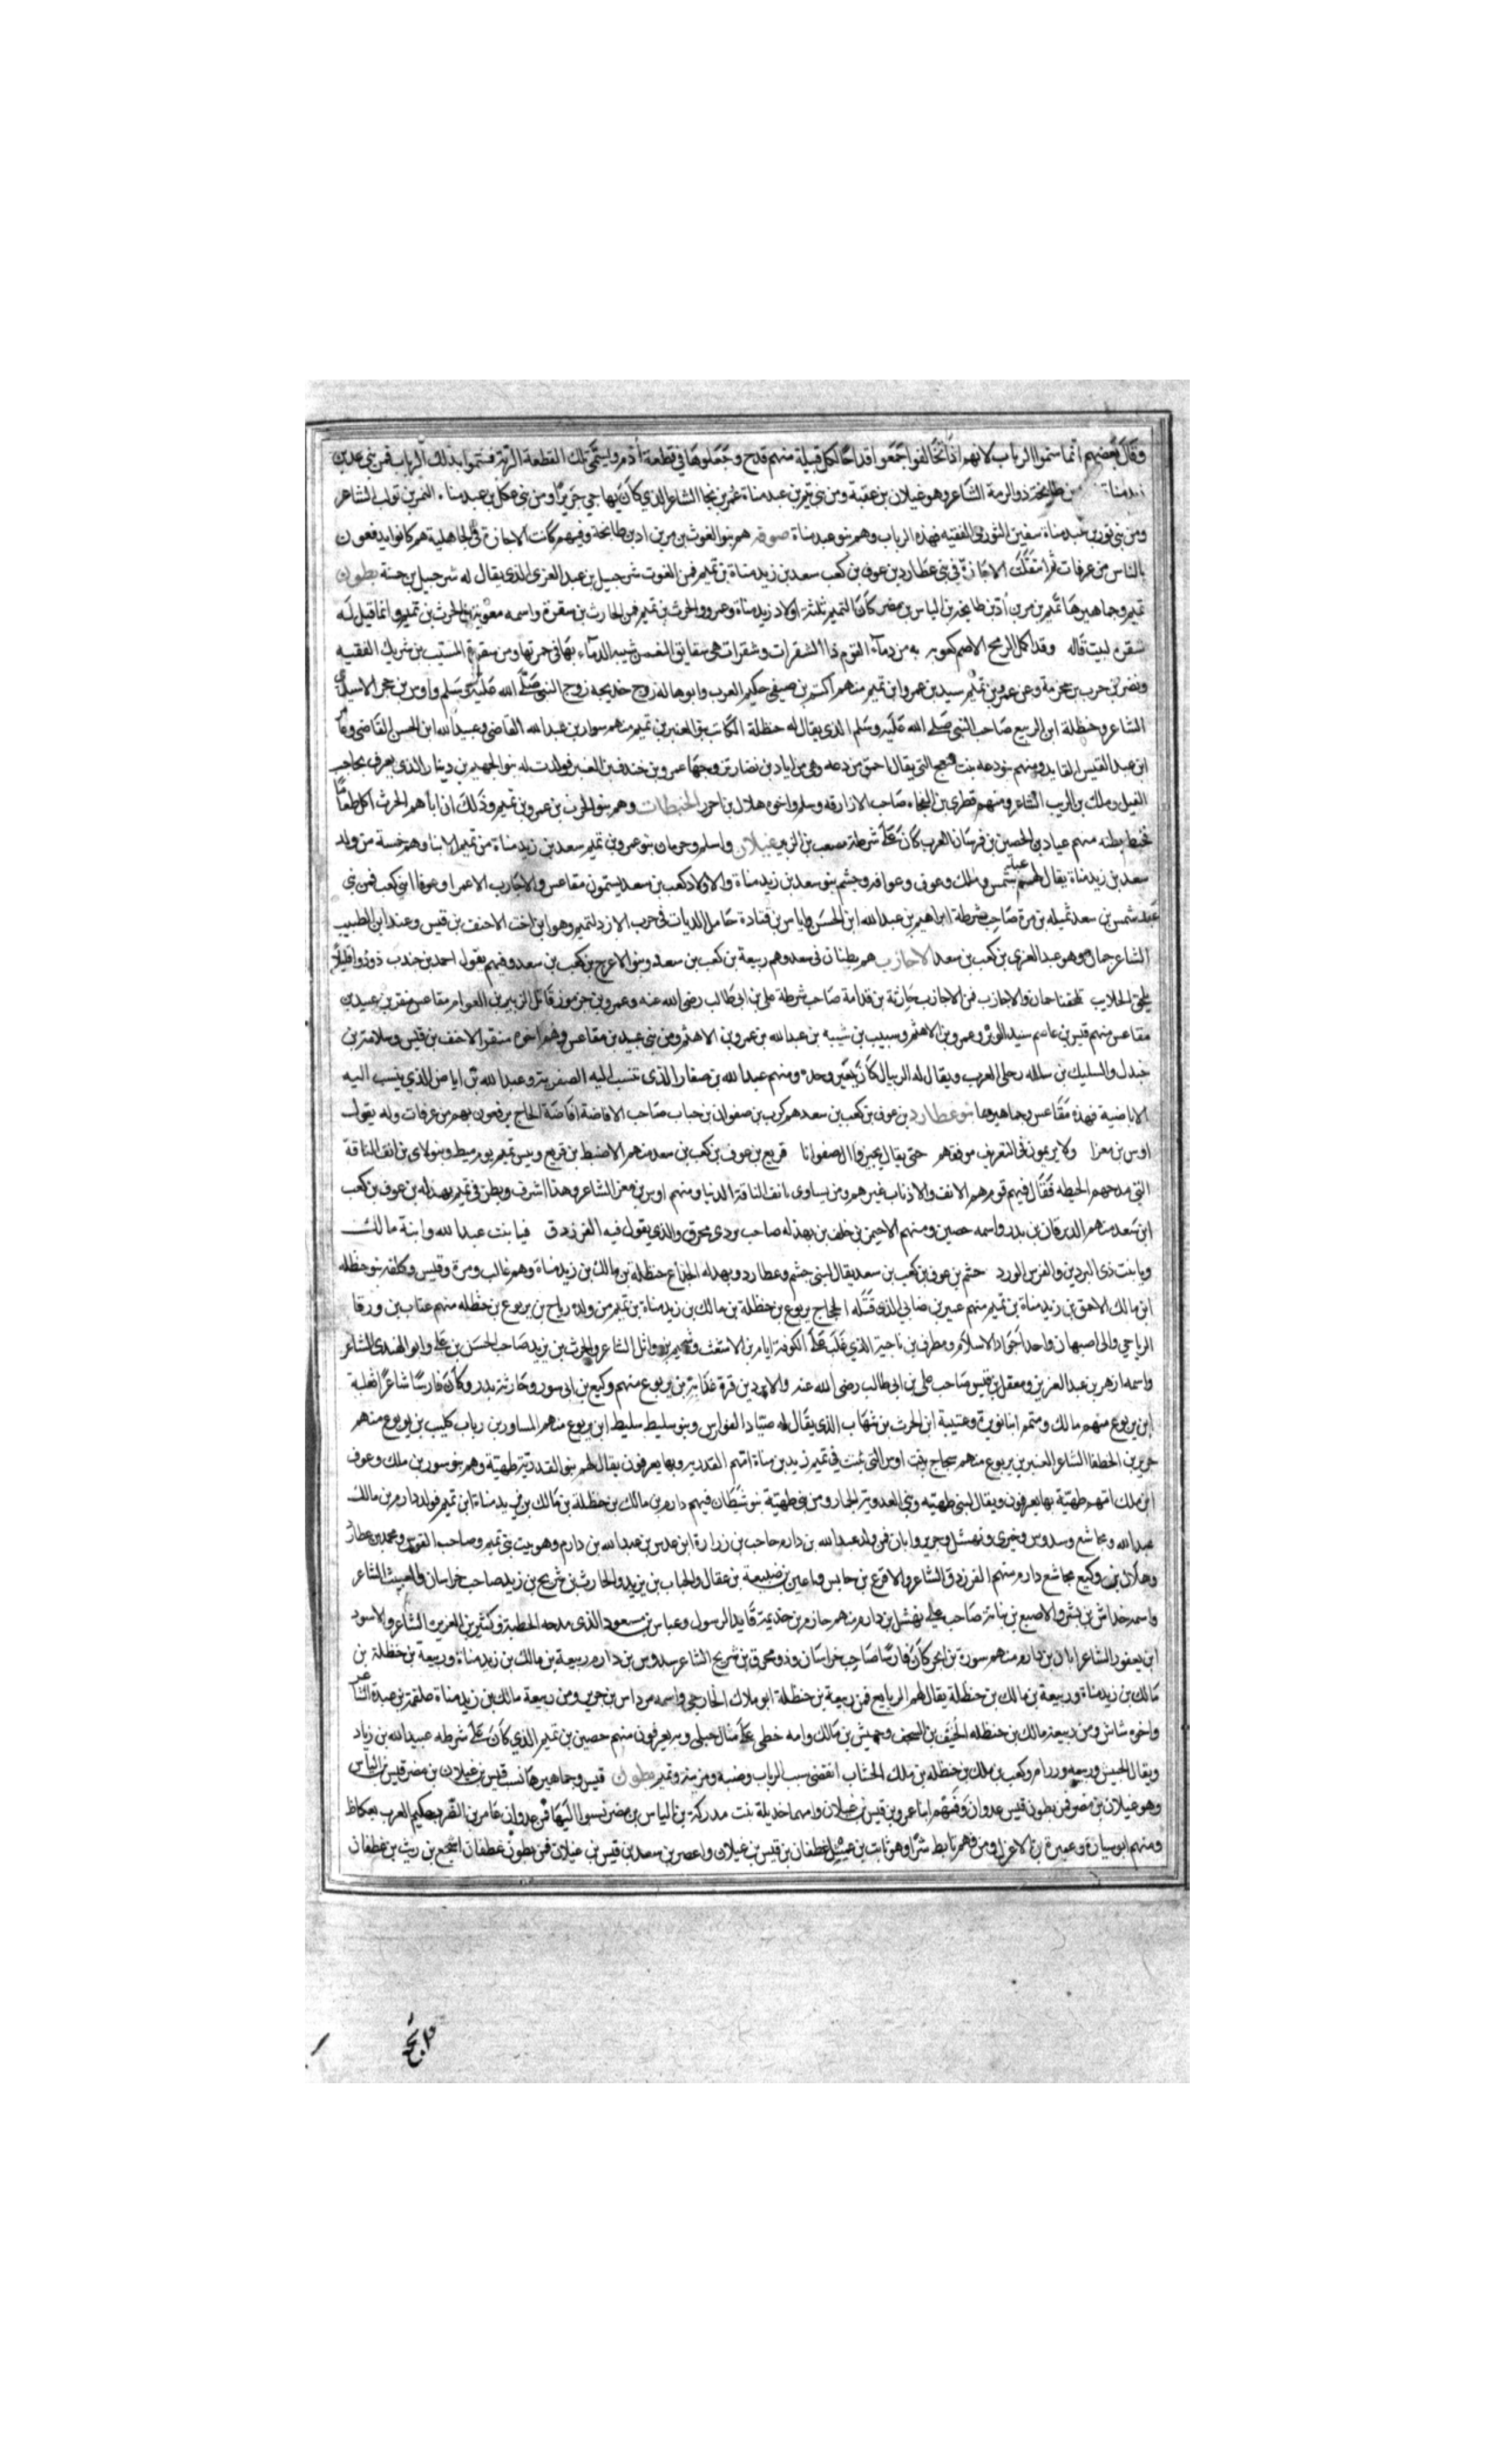 وقال بعضهم انما سموا الرباب لانهم اذا تخالفوا جمعوا اقداحا لكل قبيلة منهم قدح وجعلوها في قطعة أدم وتسمى تلك القطعة الربة فسموا بذلك الرباب فمن بني عدي بن
طابخة ذو الرمة الشاعر وهو غيلان بن عقبة ومن بني تيم بن عبد مناة عمر بن لجا الشاعر الذي كان يهاجي جريرا ومن بني عكل بن عبد مناه النمر بن تولب الشاعر
ومن بني ثور بن عبد مناة سفين الثوري الفقيه فهذه الرباب وهم بنو عبد مناة صوفه هم بنو الغوث بن مر بن اد بن طابخة وفيهم كانت الاجازة في الجاهلية هم كانوا يدفعون
بالناس من عرفات ثم انتقلت الاجازة في بني عطارد بن عوف بن كعب سعد بن زيد مناة بن تميم فمن الغوث شرحبيل بن عبد العزى الذي يقال له شرحبيل بن حسنة بطون
تميم وجماهيرها تميم بن مر بن أد بن طابخة بن الياس بن مضر كان لتميم ثلثة اولاد زيد مناة وعمرو والحرث بن تميم فمن الحارث بن شقرة واسمه معوية بن الحرث بن تميم وانما قيل له
شقره لبيت قاله وقد اكمل الرمح الاصم كعوبه به من دماء القوم ذا الشقرات وشقرات هي شقايق النعمن شبه الدماء بها في حمرتها ومن شقرة المسيب بن شريك الفقيه
ونصر بن حرب بن مخرمة وعن عمرو بن تميم سيد بن عمرو ابن تميم منهم اكثم بن صيفي حكيم العرب وابو هالة زوج خديجه زوج النبي صلى الله عليه وسلم واوس بن حجر الاسيدي
الشاعر وحنظلة ابن الربيع صاحب النبي صلى الله عليه وسلم الذي يقال له حنظلة الكاتب بنو العنبر بن تميم منهم سوار بن عبد الله القاضي وعبيد الله ابن الحسن القاضي
ابن عبد القيس العابد ومنهم بنو دعه بنت التي يقال احمق من دعه وهي من اياد بن نزار تزوجها عمرو بن جندب بن العنبر فولدت له بنو الجهيم بن دينار الذي يعرف بحاجب
الفيل وملك بن الريب الشاعر ومنهم قطري بن الفجاه صاحب الازارقه وسلم واخوه هلال بن احوز الحبطات وهم بنو الحرث بن عمرو بن تميم وذلك ان اباهم الحرث اكل طعاما
فحبط بطنه منهم عباد بن الحصين بن فرسان العرب كان على شرطة مصعب بن الزبير غيلان واسلم وحرمان بنو عمرو بن تميم سعد بن زيد مناة من تميم الابنا وهم خمسة من ولد
سعد بن زيد مناة يقال لهم عبد شمس وملك وعوف وعوافه وجشم بنو سعد بن زيد مناة والاولاد كعب بن سعد يسمون مقاعس والاجارب الا عمرا وعوفا ابني كعب فمن بني
عبد شمس بن سعد نميله بن مرة صاحب شرطة ابراهيم بن عبد الله ابن الحسن واياس بن قتادة حامل الديات في حرب الازد لتميم وهو ابن اخت الاحنف بن قيس وعبدة بن الطبيب
الشاعر وهو عبد العزى بن كعب بن سعد الاجارب هم بطنان في سعد وهم ربيعة بن كعب بن سعد وبنو الاعرج بن كعب بن سعد وفيهم يقول احمد بن جندب ذودا قليلا
يلحق الحلايب تلحقنا حمان والاجارب فمن الاجارب جارية بن قدامة صاحب شرطة علي بن ابي طالب رضي الله عنه وعمرو بن جرموز قاتل الزبير بن العوام مقاعس منقر بن عبيد بن
مقاعس منهم قيس بن عاصم سيد الوبر وعمرو بن الاهتم وشبيب بن شيبه بن عبد الله بن عمرو بن الاهتم ومن بني عبيد بن مقاعس وهم اخوه منقر الاحنف بن قيس وسلامة بن
جندل والسليك بن سلكه رجلى العرب ويقال له الريبال كان يغير وحده ومنهم عبد الله بن صفار الذي تنسب اليه الصفرية وعبد الله بن اباض الذي ينسب اليه
الاباضية فهذه مقاعس وجماهيرها بنو عطارد بن عوف بن كعب بن سعد هم كرب بن صفوان بن حباب صاحب الافاضة افاضة الحاج يدفعون بهم من عرفات وله يقول
اوس بن مغرا ولا يريمون في التعريف موقفهم حتى يقال اجيزوا ال صفوانا قريع بن عوف بن كعب بن سعد منهم الاضبط بن قريع رئيس تميم يوم ميط وبنو لاي بن انف الناقة
التي مدحهم الحطيئة فقال فيهم قوم هم الانف والاذناب غيرهم ومن يساوي بانف الناقة الدنبا ومنهم اوس بن مغرا الشاعر وهذا اشرف بطن في تميم بهدله بن عوف بن كعب
ابن سعد منهم الزبرقان بن بدر واسمه حصين ومنهم الاحيمر بن خلف بن بهدله صاحب بردي محرق والذي يقول فيه الفرزدق فيا بنت عبد الله وابنة مالك
ويا بنت ذي البردين والفرس الورد جشم بن عوف بن كعب بن سعد يقال لبني جشم وعطارد وبهدله الجذاع حنظله بن مالك بن زيد مناة وهم غالب ومرة وقيس وكلفه بنو حنظله
ابن مالك الاحمق بن زيد مناة بن تميم منهم عمير بن ضابي الذي قتله الحجاج يربوع بن حنظلة بن مالك بن زيد مناة بن تميم من ولده رياح بن يربوع بن حنظله منهم عتاب بن ورقا
الرياحي والي اصبهان واحد اجواد الاسلام ومطرف بن ناجية الذي غلب على الكوفة ايام بن الاشعث وسحيم بن واثل الشاعر والحرث بن يزيد صاحب الحسن بن علي وابو الهندي الشاعر
واسمه ازهر بن عبد العزيز ومعقل بن قيس صاحب علي بن ابي طالب رضي الله عنه والابرد بن قرة غدانة بن يربوع منهم وكيع بن ابي سود وحارثة بن بدر وكان فارسا شاعرا ثعلبة
ابن يربوع منهم مالك ومتمم ابنا نويرة وعتيبة ابن الحرث بن شهاب الذي يقال له صياد الفوارس وبنو سليط سليط ابن يربوع منهم المساور بن رباب كليب بن يربوع منهم
جرير بن الخطفا الشاعر العنبر بن يربوع منهم سجاح بنت اوس التي تنبت في تميم زيد بن مناة امهم القدريه وبها يعرفون يقال لهم بنو القدرية طهية وهم بنو سور بن ملك وعوف
ابن ملك امهم طهية بها يعرفون ويقال لبني طهيه وبني العدوية الجمار ومن بني طهية بنو شيطان فيهم دارم بن مالك بن حنظلة بن مالك بن زيد مناة ابن تميم فولد دارم بن مالك
عبد الله ومجاشع وسدوس وخيبري ونهشل وجرير وابان فمن ولد عبد الله بن دارم حاجب بن زرارة ابن عدس بن عبد الله بن دارم وهو بيت بني تميم وصاحب القوس ومحمد بن عطارد
وهلال بن وكيع مجاشع دارم منهم الفرزدق الشاعر والاقرع بن حابس واعين بن ضبيعة بن عقال والحباب بن يزيد والحارث بن شريح بن زيد صاحب خراسان والبعيث الشاعر
واسمه خداش بن بشر والاصبغ بن نباتة صاحب علي نهشل بن دارم منهم حازم بن خذيمة قايد الرسول وعباس بن مسعود الذي مدحه الحطيئة وكثير بن العزيزة الشاعر والاسود
ابن يعفور الشاعر ابان بن دارم منهم سورة بن ابجر كان فارسا صاحب خراسان وذو محرق بن شريح الشاعر سدوس بن دارم ربيعة بن مالك بن زيد مناة وربيعة بن حنظلة بن
مالك بن زيد مناة وربيعة بن مالك بن حنظلة يقال لهم الربايع فمن ربيعة بن حنظلة ابو بلال الخارجي واسمه مرداس بن جرير ومن ربيعة مالك بن زيد مناة علقمة بن عبدة الشاعر
واخوه شاس ومن ربيعة مالك بن حنظله الحنيف بن السجف وجهيش بن مالك وامه خطى على مثال حبلى وبه يعرفون منهم حصين بن تميم الذي كان على شرطه عبيد الله بن زياد
ويقال لجهيش وربيعه ورزام وكعب بن ملك بن حنظله بن ملك الخشاب انقضى نسب الرباب وضبه ومزينة وتميم بطون قيس وجماهيرها نسب قيس بن غيلان بن مضر قيس بن الناس
وهو غيلان بن مضر فمن بطون قيس عدوان وفهم ابنا عمرو بن قيس بن غيلان وامهما خديلة بنت مدركة بن الياس بن مضر نسبوا اليها فمن عدوان عامر بن الظرب حكيم العرب بعكاظ
ومنهم ابو سيارة وعميرة بن الاعزل ومن فهم تابط شرا وهو ثابت بن عميثل غطفان بن قيس بن غيلان واعصر بن سعد بن قيس بن غيلان فمن بطون غطفان اشجع بن ريث بن غطفان